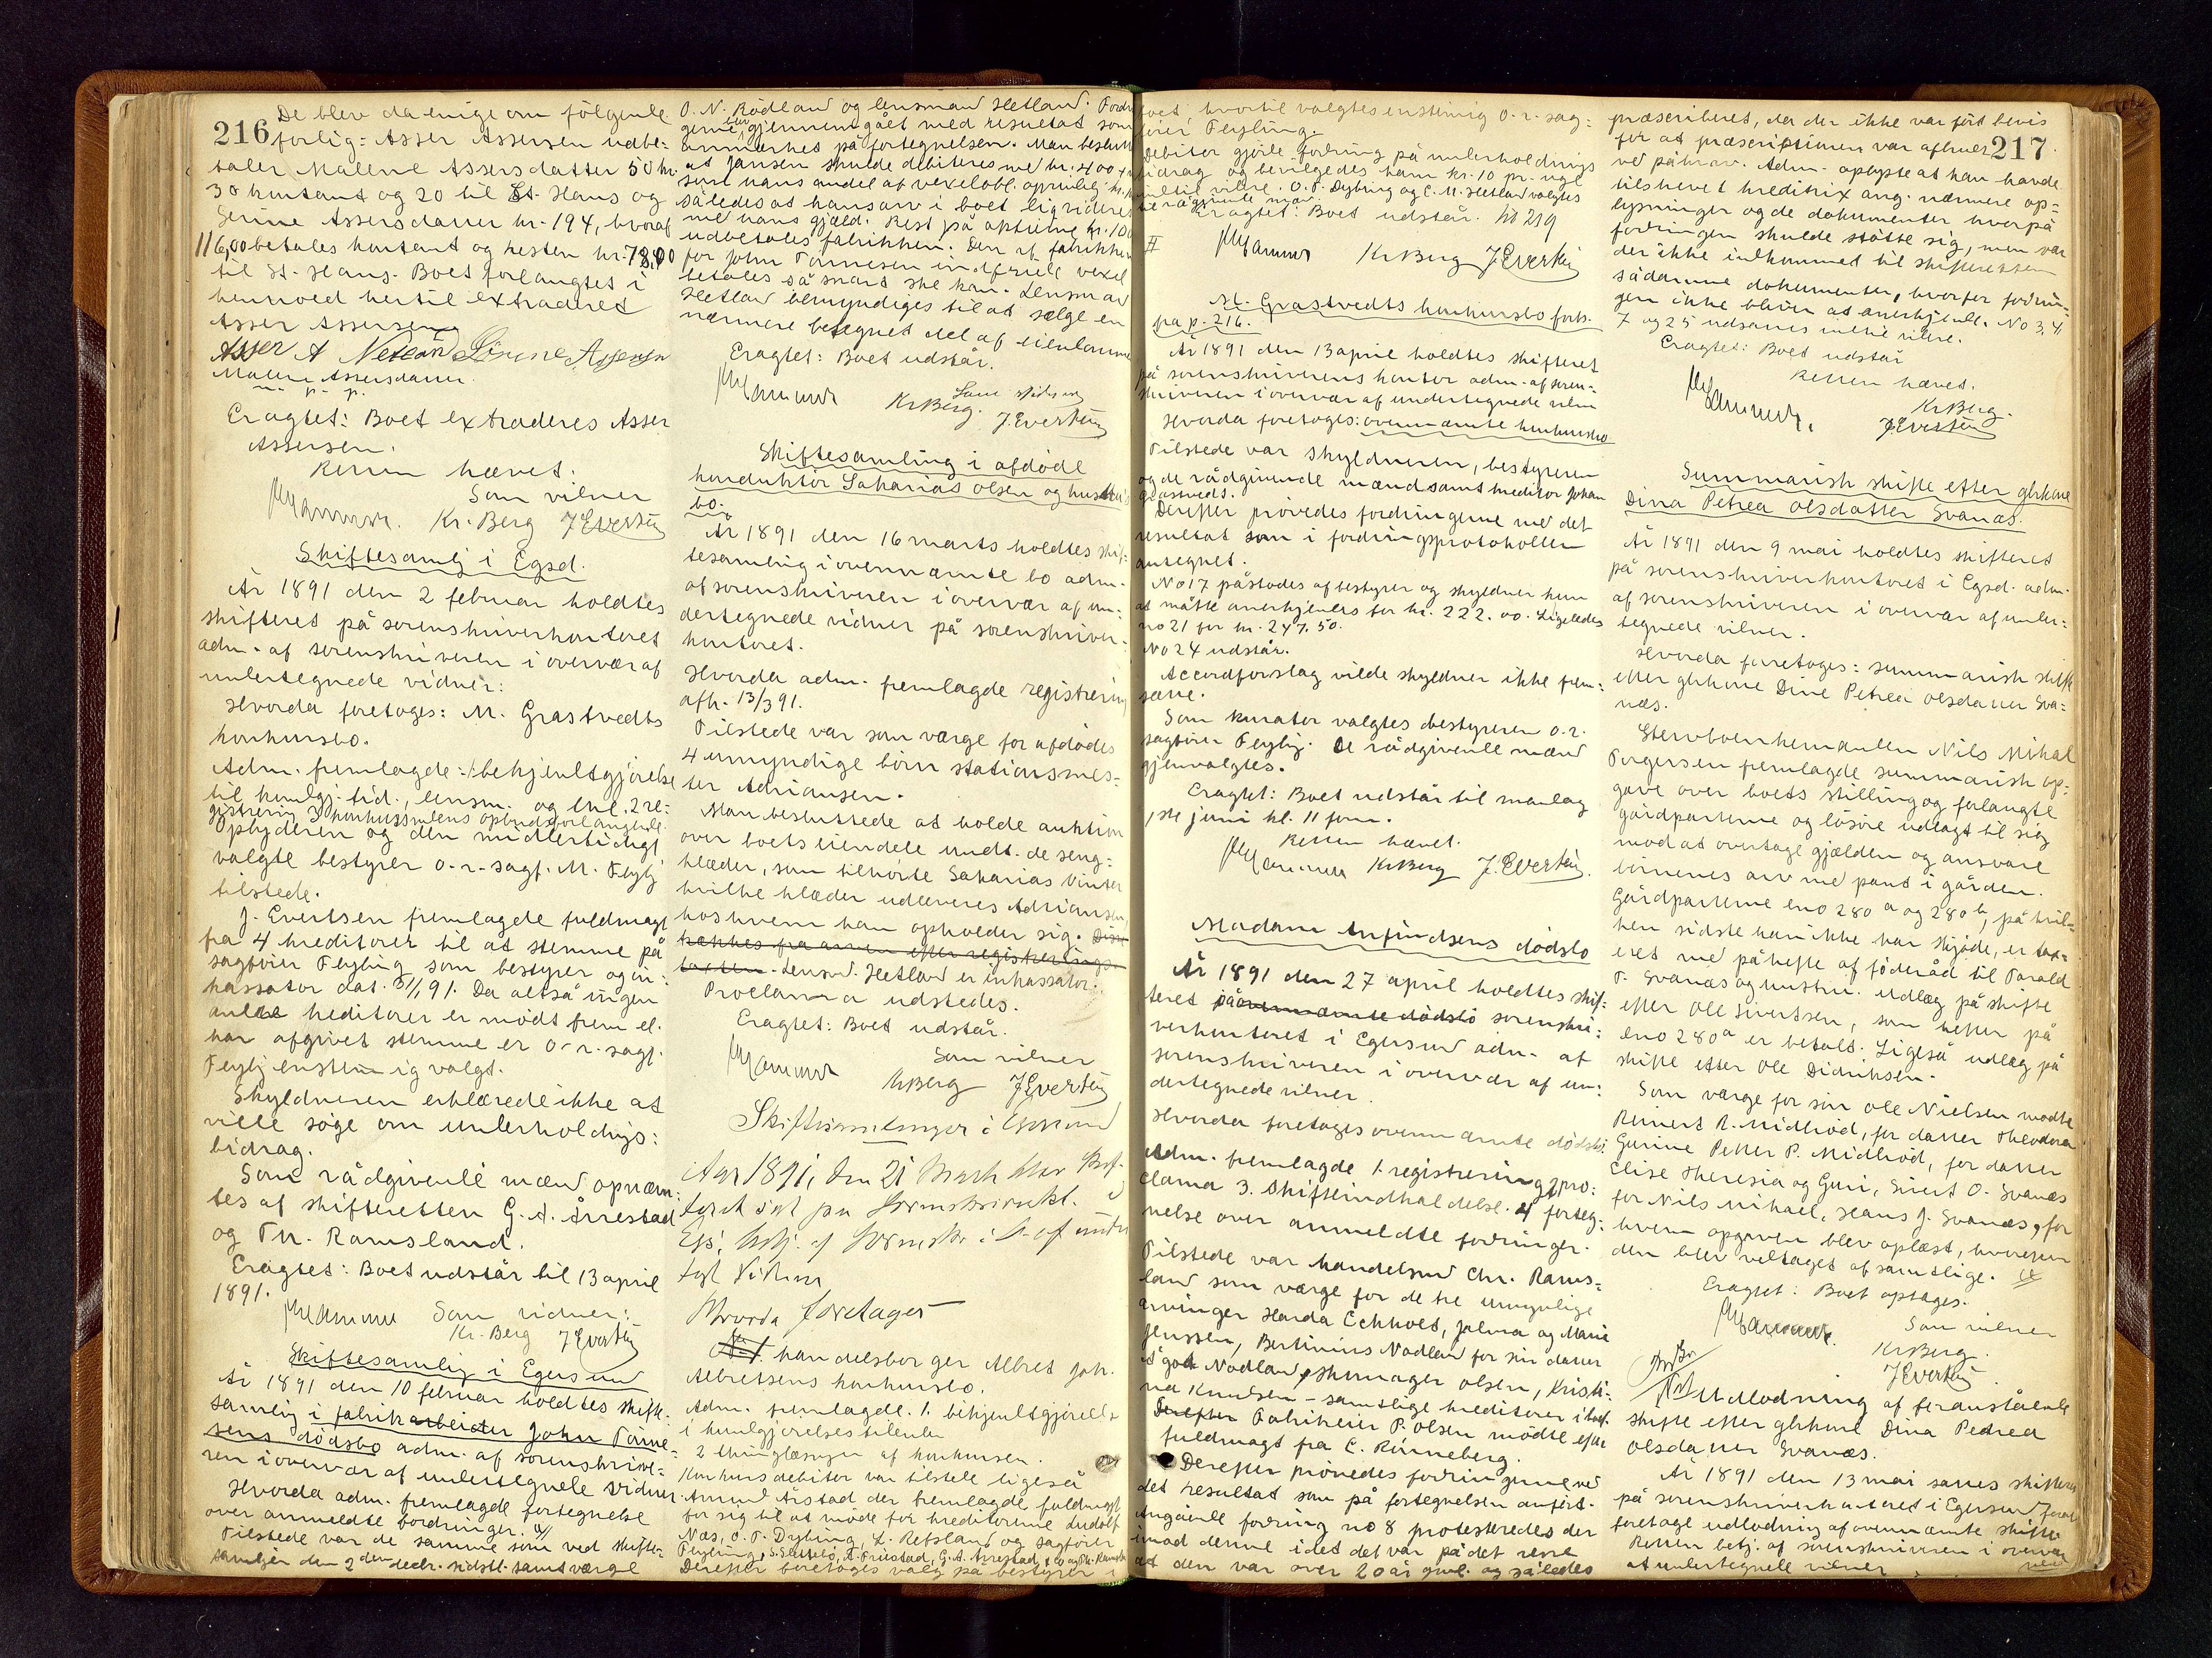 216
De blev da enige om følgende
forlig: Asser Assersen udbe=
taler Malene Assersdatter 50 kr.
30 kontant og 20 til St. Hans og
Serine Assersdatter kr. 194, hvoraf
116,00 betales kontant og resten kr. 78,00
til St. Hans. Boet forlangtes i
henhold hertil extraderet
Asser Assersen
Asser A Netland Sørine Assersen
Malene Assersdatter
m. p. p.
Eragtet: Boet extraderes Asser
Assersen.
Retten hævet.
Som vidner
Kr. Berg J Evertsen
Skiftesamlg i Egsd.
År 1891 den 2 februar holdtes
skifteret på sorenskriverkontoret
adm. af sorenskriveren i overvær af
undertegnede vidner:
Hvorda foretoges: M. Grastvedts
konkursbo.
Adm. fremlagde: 1 bekjendtgjørelse
til kundgj. tid., lensm. og thl. 2 re=
gistrering 3 konkursens opbudsforlangende
Opbyderen og den midlertidigt
valgte bestyrer o.r. sagf. M. Feylg
tilstede.
J. Evertsen fremlagde fuldmagt
fra 4 kreditorer til at stemme på
sagfører Feyling som bestyrer og in=
kassator dat. 31/1 91. Da altså ingen
andre kreditorer er mødt frem el.
har afgivet stemme er o.r. sagf.
Feylg enstemmig valgt.
Skyldneren erklærede ikke at
ville søge om underholdngs=
bidrag.
Som rådgivende mænd opnævn=
tes af skifteretten G. A. Årrestad
og Th. Ramsland.
Eragtet: Boet udstår til 13 april
1891.
Som vidner:
Kr. Berg J Evertsen
Skiftesamlig i Egersund
År 1891 den 10 februar holdtes skifte=
samlig i fabrikarbeider John Tønne=
sens dødsbo adm. af sorenskrive=
ren i overvær af undertegnede vidner.
Hvorda adm. fremlagde fortegnelse
over anmeldte fordringer.
Tilstede var de samme som ved skifte=
samlgen den 2den decbr. sidstl. samt værge
O. N. Rødland og lensmand Hetland. Fordr
gerne blev gjennemgået med resultat som
anmerket på fortegnelsen. Man beslutt
at Jansen skulde debiteres med kr. 400,
som hans andel af vexelobl. oprindlig kr.
således at hans arv i boet ligvideres
med hans gjæld. Rest på optime kr. 100
udbetales fabrikken. Den af fabrikken
for John Tønnesen indfriede vexel
betales så snart ske kan. Lensmand
Hetland bemyndiges til at sælge en
nærmere betegnet del af eiendommen
Eragtet: Boet udstår.
Som vidner
Kr Berg. J. Evertsen
Skiftesamling i afdøde
konduktør Sakarias Olsen og hustrus
bo.
År 1891 den 16 marts holdtes skif=
tesamling i ovennævnte bo adm.
af sorenskriveren i overvær af un=
dertegnede vidner på sorenskriver=
kontoret.
Hvorda adm. fremlagde registrering
afh. 13/3 91.
Tilstede var som værge for afdødes
4 umyndige børn stationsmes=
ter Adriansen.
Man besluttede at holde auktion
over boets eiendele undt. de seng=
klæder, som tilhørte Sakarias Vinter
hvilke klæder udleveres Adriansen,
hos hvem han opholder sig. Disse
trækkes fra arven efter registrerings=
taxten. Lensmd. Hetland er inkassator.
Proclama udstedes.
Eragtet: Boet udstår.
Som vidner
Kr Berg J Evertsen
Skiftesamlinger i Egersund
Aar 1891, den 21 Marts blev Skif=
teret sat paa Sorenskriverkt. i
Egs. betj. af Sorenskr. i O. af under
tegt Vidner
Hvorda foretoges
No 1. handelsborger Albret Joh.
Albretsens konkursbo.
Adm. fremlagde. 1. bekjendtgjørelse
i kundgjørelsestidende
2 thinglæsnger af konkursen.
Konkursdebitor var tilstede ligeså
Amund Årstad der fremlagde fuldmagt
for sig til at møde for kreditorerne Ludolf
Næs, O. T. Dybing, L. Refsland og sagfører
Feyling, G. A. Årrestad & co og Th. Ramsland
Derefter foretoges valg på bestyrer i
217
boet, hvortil valgtes enstemig o.r. sag=
fører Feyling.
Debitor gjorde fordring på underholdnings
bidrag og bevilgedes ham kr. 10 pr. uge
indtil videre. O. T. Dybing og C. M. Hetland valgtes
til rådgivende mænd.
Eragtet: Boet udstår. No 219
II
Kr Berg J Evertsen
M. Grastvedts konkursbo forts.
fra p. 216.
År 1891 den 13 april holdtes skifteret
på sorenskriverens kontor adm. af soren=
skriveren i overvær af undertegnede vidner
Hvorda foretoges: ovennævnte konkursbo
Tilstede var skyldneren, bestyreren
og de rådgivende mænd samt kreditor Johan
Grastvedt.
Derefter prøvedes fordringerne med det
resultat som i fordringsprotokollen
antegnet.
No 17 påstodes af bestyrer og skyldner kun
at måtte anerkjendes for kr. 222.00. Ligeledes
no 21 for kr. 247.50.
No 24 udstår.
Accordforslag vilde skyldner ikke frem=
sætte.
Som kurator valgtes bestyreren o.r.
sagfører Feylig. De rådgivende mænd
gjenvalgtes.
Eragtet: Boet udstår til mandag
1ste juni kl. 11 form.
Retten hævet.
Kr Berg J. Evertsen.
Madam Enfindsens dødsbo
År 1891 den 27 april holdtes skif=
teret på ovennævnte dødsbo sorenskri=
verkontoret i Egersund adm. af
sorenskriveren i overvær af un=
dertegnede vidner.
Hvorda foretoges ovennævnte dødsbo.
Adm. fremlagde 1. registrering 2 pro=
clama 3. Skifteindkaldelse. 4 forteg=
nelse over anmeldte fordringer.
Tilstede var handelsmd Chr. Rams=
land som værge for de tre umyndige
arvinger Harda Eckholt, Jalma og Marie
Jenssen, Bertinius Nodland for sin datter
Nodland, Skomager Olsen, Kristi=
na Knudsen – samtlige kreditorer i boet.
Derefter Fabrikeier P. Olsen mødte efter
fuldmagt fra C. Rønneberg.
Derefter prøvedes fordringerne med
det resultat som på fortegnelsen anført.
Angående fordring no 8 protesteredes der
imod denne idet det var på det rene
at den var over 20 år gml. og således
præscriberet, da der ikke var ført bevis
for at præscriptionen var afbrudt
ved påkrav. Adm. oplyste at han havde
tilskrevet kreditrix ang. nærmere op=
lysninger og de dokumenter hvorpå
fordringen skulde støtte sig, men var
der ikke indkommet til skifteretten
sådanne dokumenter, hvorfor fordrin=
gen ikke bliver at anerkjende. No 3, 4
7 og 25 udsættes indtil videre.
Eragtet: Boet udstår
Retten hævet.
Kr Berg.
J Evertsen
Summarisk skifte efter gbrkone
Dina Petrea Olsdatter Svanæs.
År 1891 den 9 mai holdtes skifteret
på sorenskriverkontoret i Egsd. adm.
af sorenskriveren i overvær af under=
tegnede vidner.
Hvorda foretoges: summarisk skifte
efter gbrkone Dine Petrea Olsdatter Sva=
næs.
Stervboenkemanden Nils Mikal
Torgersen fremlagde summarisk op=
gave over boets stilling og forlangte
gårdparterne og løsøre udlagt til sig
mod at overtage gjælden og ansvare
børnenes arv med pant i gården.
Gårdparterne eno 280 a og 280 b, på hvil=
ken sidste han ikke har skjøde, er tax=
eret med påhefte af føderåd til Torald
T. Svanæs og hustru. Udlæg på skifte
efter Ole Sivertsen, som hefter på
eno 280 a er betalt. Ligeså udlæg på
skifte efter Ole Didriksen.
Som værge for søn Ole Nielsen mødte
Reinert R. Midbrød, for datter Theodora
Gurine Petter P. Midbrød, for datter
Elise Theresia og Guri, Sivert O. Svanæs
for Nils Mikael, Hans J. Svanæs, for
hvem opgaven blev oplæst, hvorefter
den blev vedtaget af samtlige.
Eragtet: Boet optages.
Som vidner
Kr Berg.
J Evertsen
Udlodning af foranstående
skifte efter gbrkone Dina Petrea
Olsdatter Svanæs.
År 1891 den 13 mai sattes skifteret
på sorenskriverkontoret i Egersund for at
foretage udlodning af ovennævnte skifte
Retten betj. af sorenskriveren i overvær
af undertegnede vidner